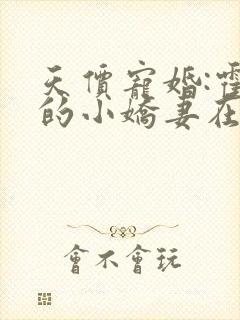 天價寵婚:霍
的小嬌妻在
會不會玩